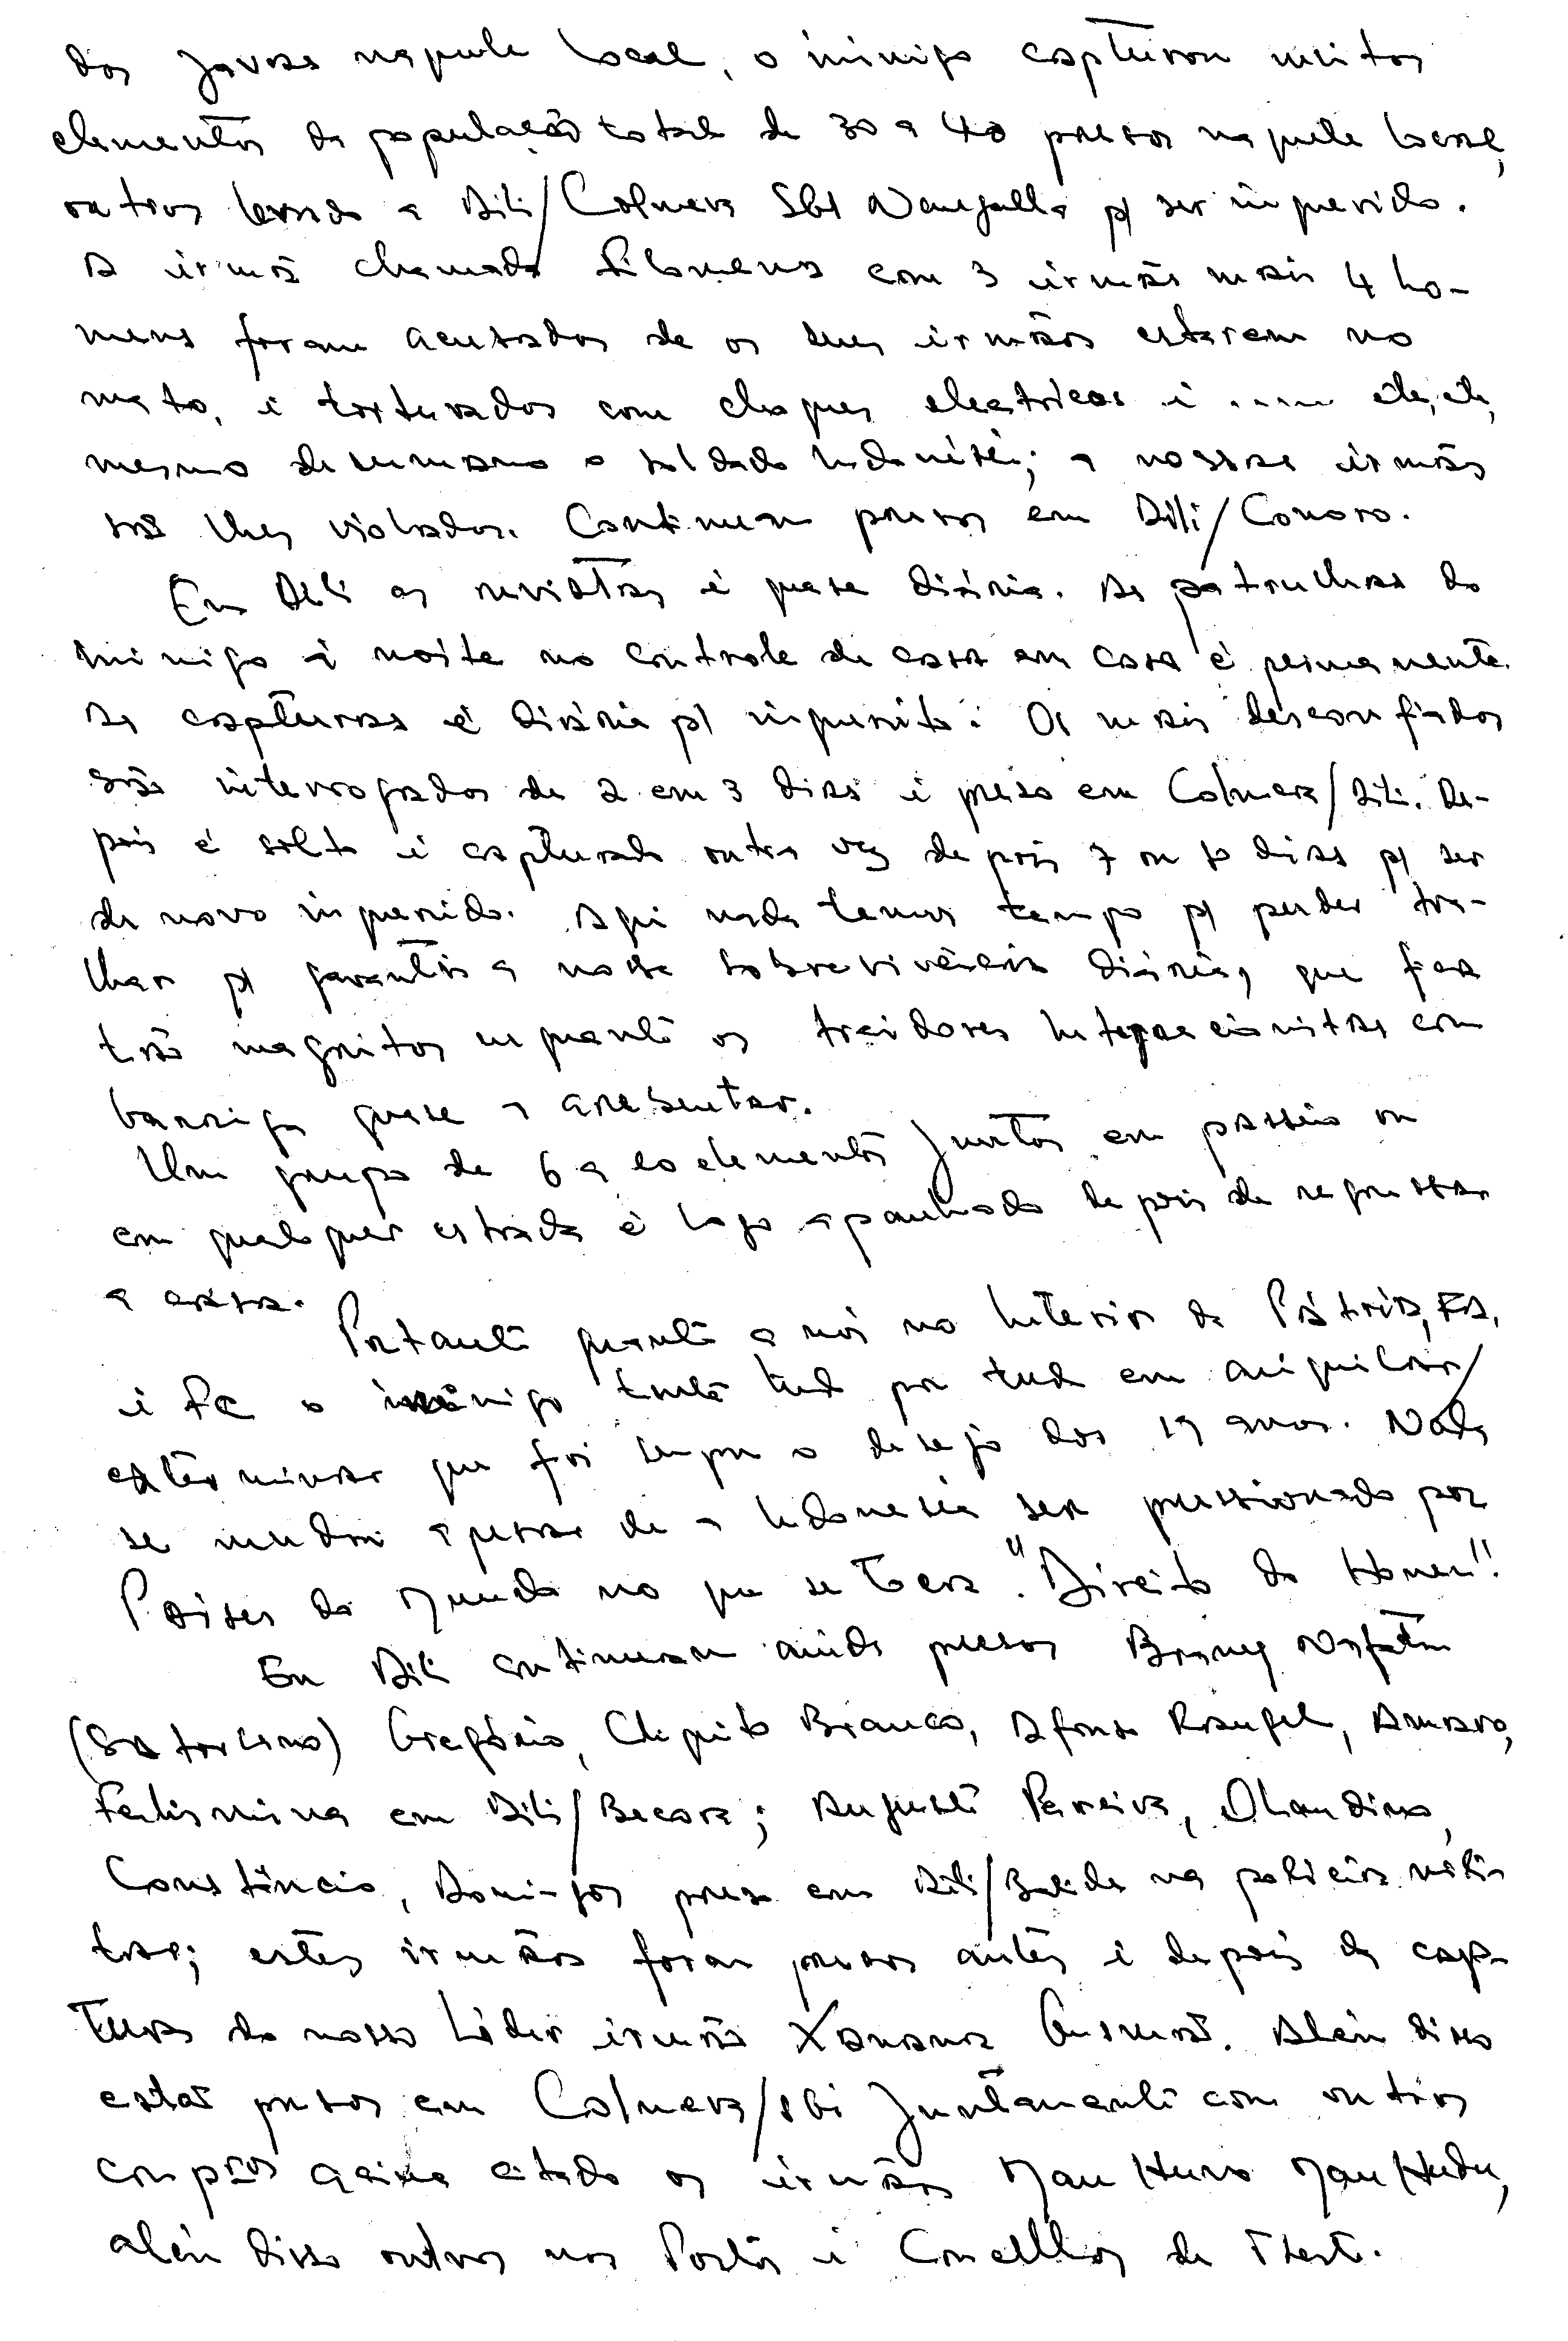 dos javas naquele local, o inimigo capturou muitos
elementos da população total de 30 a 40 presos naquele local,
outros levado a Dili/Colmera SGI p/ ser inquerido.
A irmã chamada Filomena com 3 irmãs mais 4 ho-
mens foram acusados de os seus irmãos estarem no
mato, i torturados com choques electricos i ..... etc, etc,
mesmo desumano o soldado Indonésio; a nossas irmãs
são lhes violadas. Continuam presos em Dili/Comoro.
Em Dili as revistas é quase diária. As patrulhas do
inimigo à noite no controle de casa em casa é permanente.
As capturas é diária p/ inquerito. Os mais desconfiados
são interrogados de 2 em 3 dias i preso em Colmera/Dili. De-
pois é solto i capturado outra vez depois 7 ou 10 dias p/ ser
de novo inquerido. Aqui nada temos tempo p/ perder tra-
lhar p/ garantir a nossa sobrevivência diária, que fica
tão magritos enquanto os traidores Integracionistas com
barriga quase a arebentar.
Um grupo de 6 a 10 elementos juntos em passeio ou
em qualquer estrada é logo apanhado depois de regressar
a casa.
Portanto quanto a nós no Interior da Pátria, FA,
i FC o inimigo tenta tudo por tudo em aniquilar/
exterminar que foi sempre o desejo dos 19 anos. Nada
se mudou apesar de a Indonesia ser pressionado por
Paises do Mundo no que se toca "Direito do Homem".
Em Dili continuam ainda presos Braney
(Saturlino) Gregório, Chiquito Branco, Afonso Rangel, Amaro,
Felismina em Dili/Becora; Augusto Pereira, Olandino,
Constâncio, Domingos preso em Dili/Balide na policia mili-
tar; estes irmãos foram presos antes i depois da cap-
tura do nosso Líder irmão Xanana Gusmão. Além disso
estão presos em Colmera/SGI juntamente com outros
compros acima citado os irmãos Mau Huno Mau Hudu,
além disso outros nos Postos i Concelhos de T. Leste.